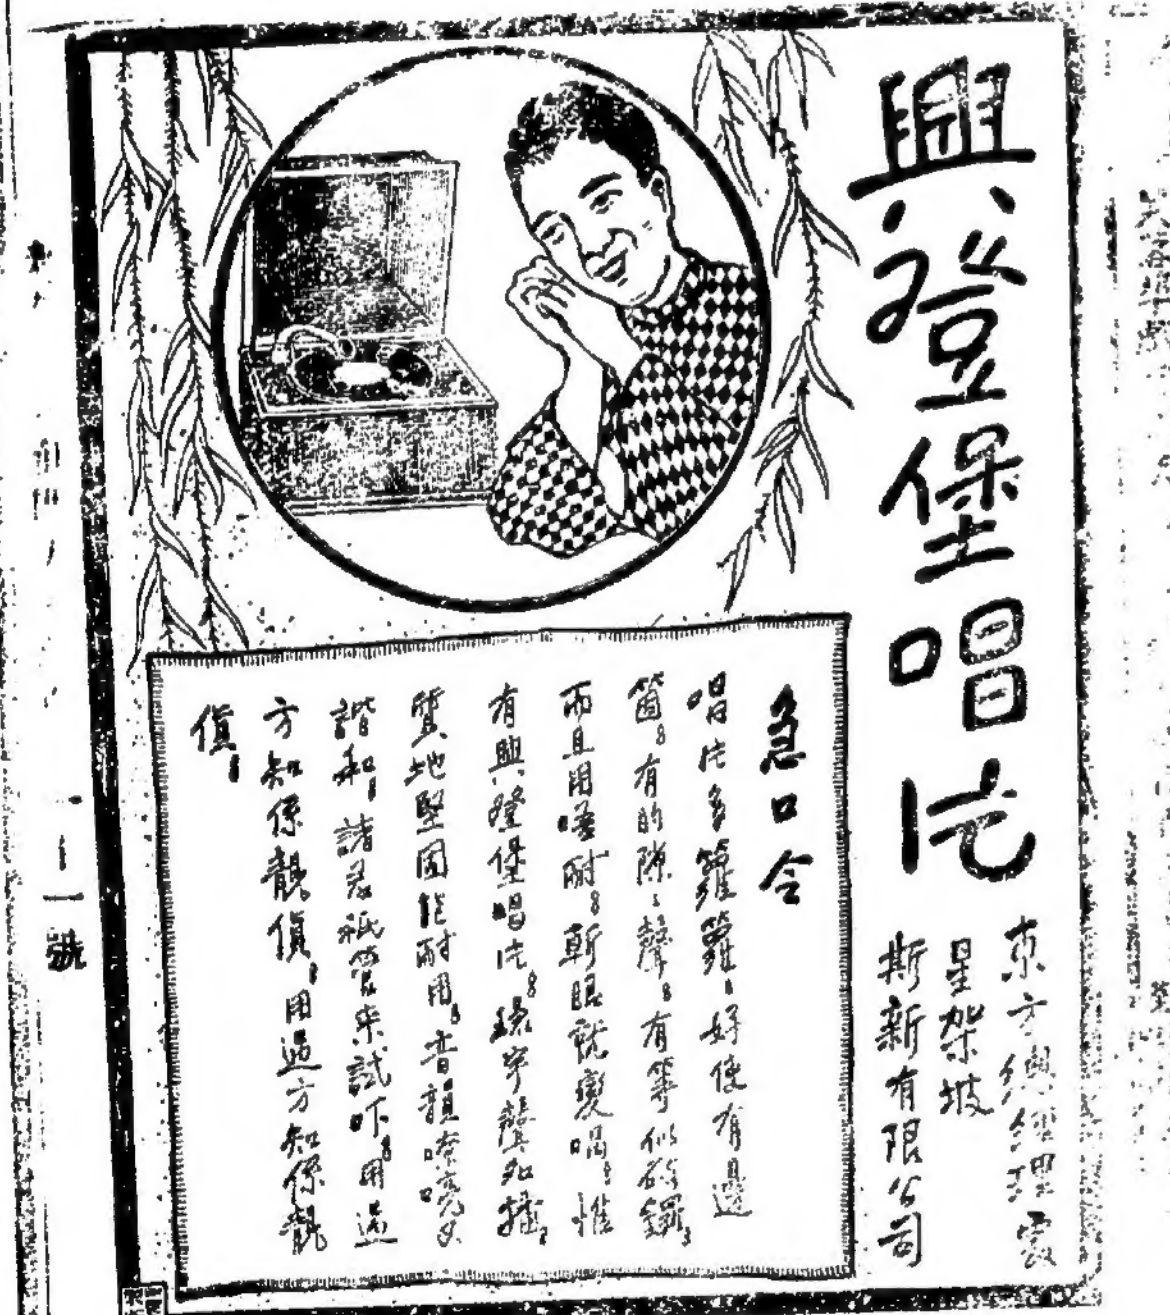 興登堡唱片
東方總經理處
星架坡
斯新有限公司
急口令
唱片多籮籮，好使有邊
箇。有的隙隙聲。有等似砵鑼，
而且用唔耐。斬眼就變喎，惟
有興登堡唱片。環宇聲如播，
質地堅固能耐用，音韻嘹亮又
諧和，諸君祇管來試吓。用過
方知係靚貨，用過方知係靚
貨，
一號